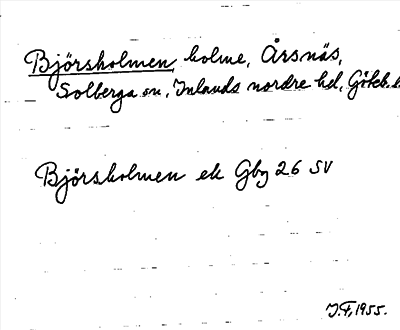 Björsholmen holme, Årsnäs,
Solberga sn, Inlands nordre hd, Göteb. l.
Björsholmen ek Gbg 26 SV
J.F. 1955.